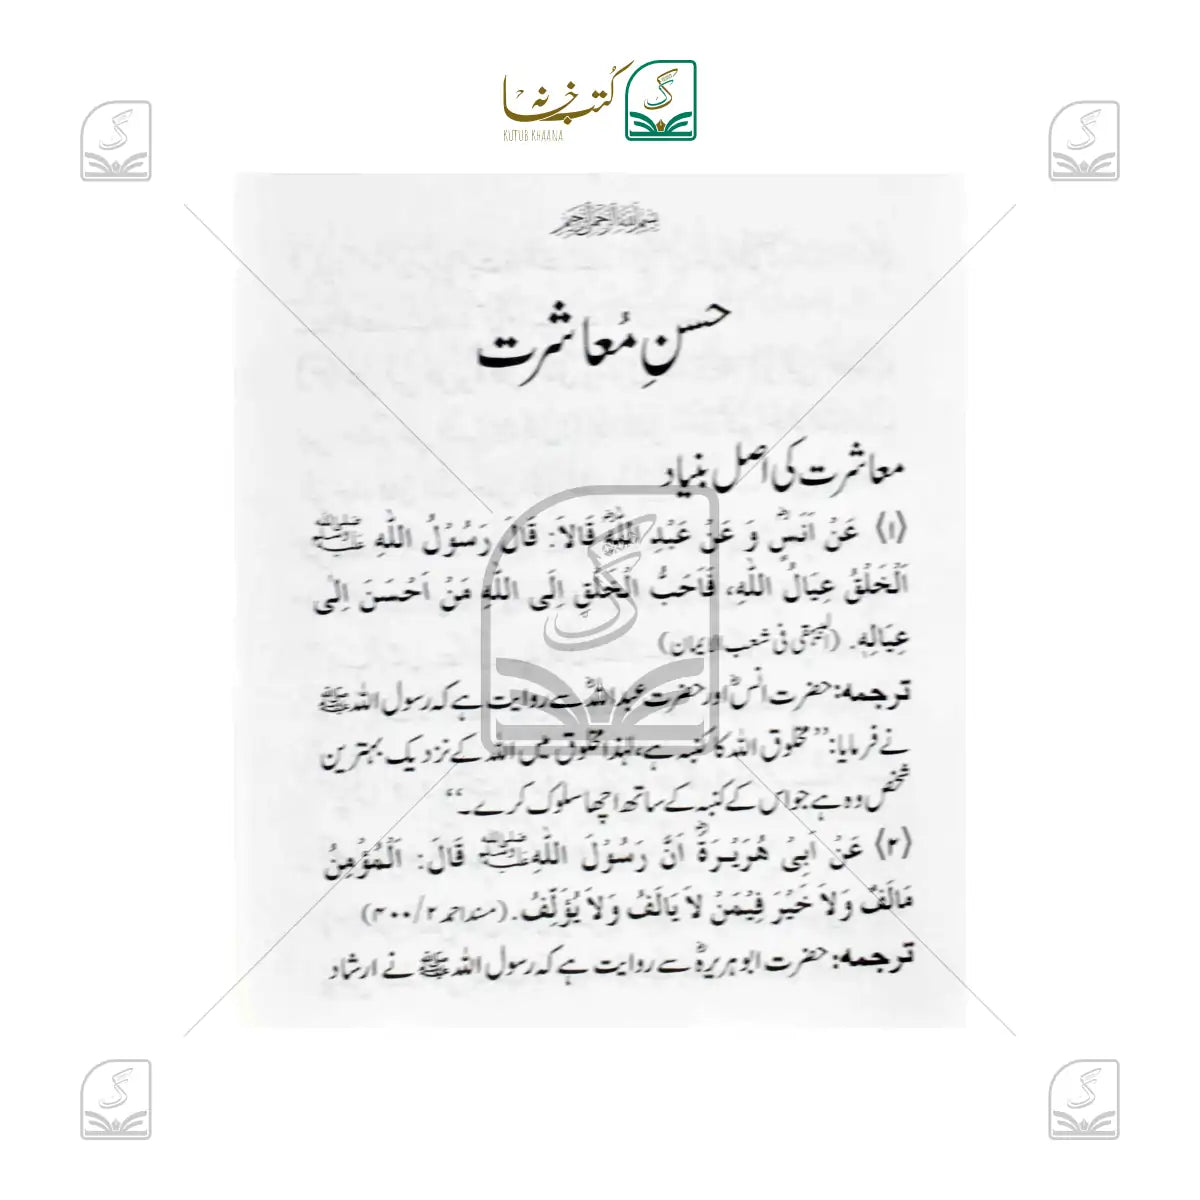 کتب خانہ
KUTUB KHAANA
بسم اللہ الرحمن الرحیم
حسنِ مُعاشرت
معاشرت کی اصل بنیاد
⟨۱⟩ عَنْ اَنَسٍؓ وَ عَنْ عَبْدِ اللّٰہِؓ قَالَا: قَالَ رَسُوْلُ اللّٰہِ ﷺ
اَلْخَلْقُ عِیَالُ اللّٰہِ، فَاَحَبُّ الْخَلْقِ اِلَی اللّٰہِ مَنْ اَحْسَنَ اِلٰی
عِیَالِہٖ. (البیہقی فی شعب الایمان)
ترجمہ: حضرت انسؓ اور حضرت عبد اللہؓ سے روایت ہے کہ رسول اللہ ﷺ
نے فرمایا: ’’مخلوق اللہ کا کنبہ ہے، لہٰذا مخلوق میں اللہ کے نزدیک بہترین
شخص وہ ہے جو اس کے کنبہ کے ساتھ اچھا سلوک کرے۔‘‘
⟨۲⟩ عَنْ اَبِیْ ھُرَیْرَۃَؓ اَنَّ رَسُوْلَ اللّٰہِ ﷺ قَالَ: اَلْمُؤْمِنُ
مَالَفٌ وَلَا خَیْرَ فِیْمَنْ لَا یَالَفُ وَلَا یُؤَلَّفُ. (مسند احمد ۲/۴۰۰)
ترجمہ: حضرت ابوہریرہؓ سے روایت ہے کہ رسول اللہ ﷺ نے ارشاد